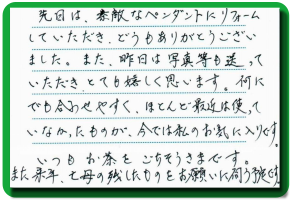 先日は、素敵なペンダントにリフォーム
していただき、どうもありがとうござい
ました。また、昨日は写真等も送って
いただきとても嬉しく思います。何に
でも合わせやすく、ほとんど最近は使って
いなかったものが、今では私のお気に入りです。
いつもお茶をごちそうさまです。
また来年、亡母の残したものをお願いに伺う予定です。